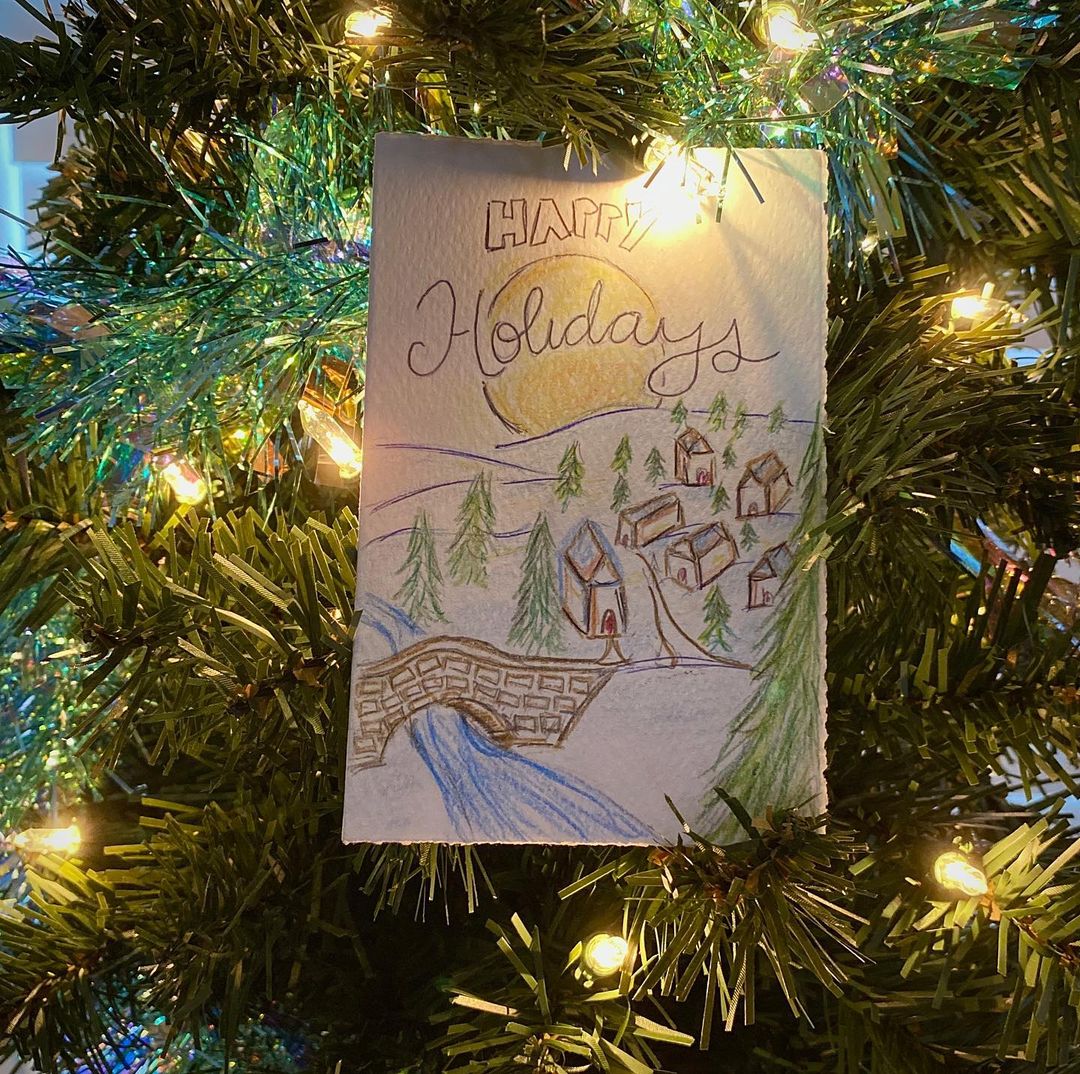 HAPPY
Holidays